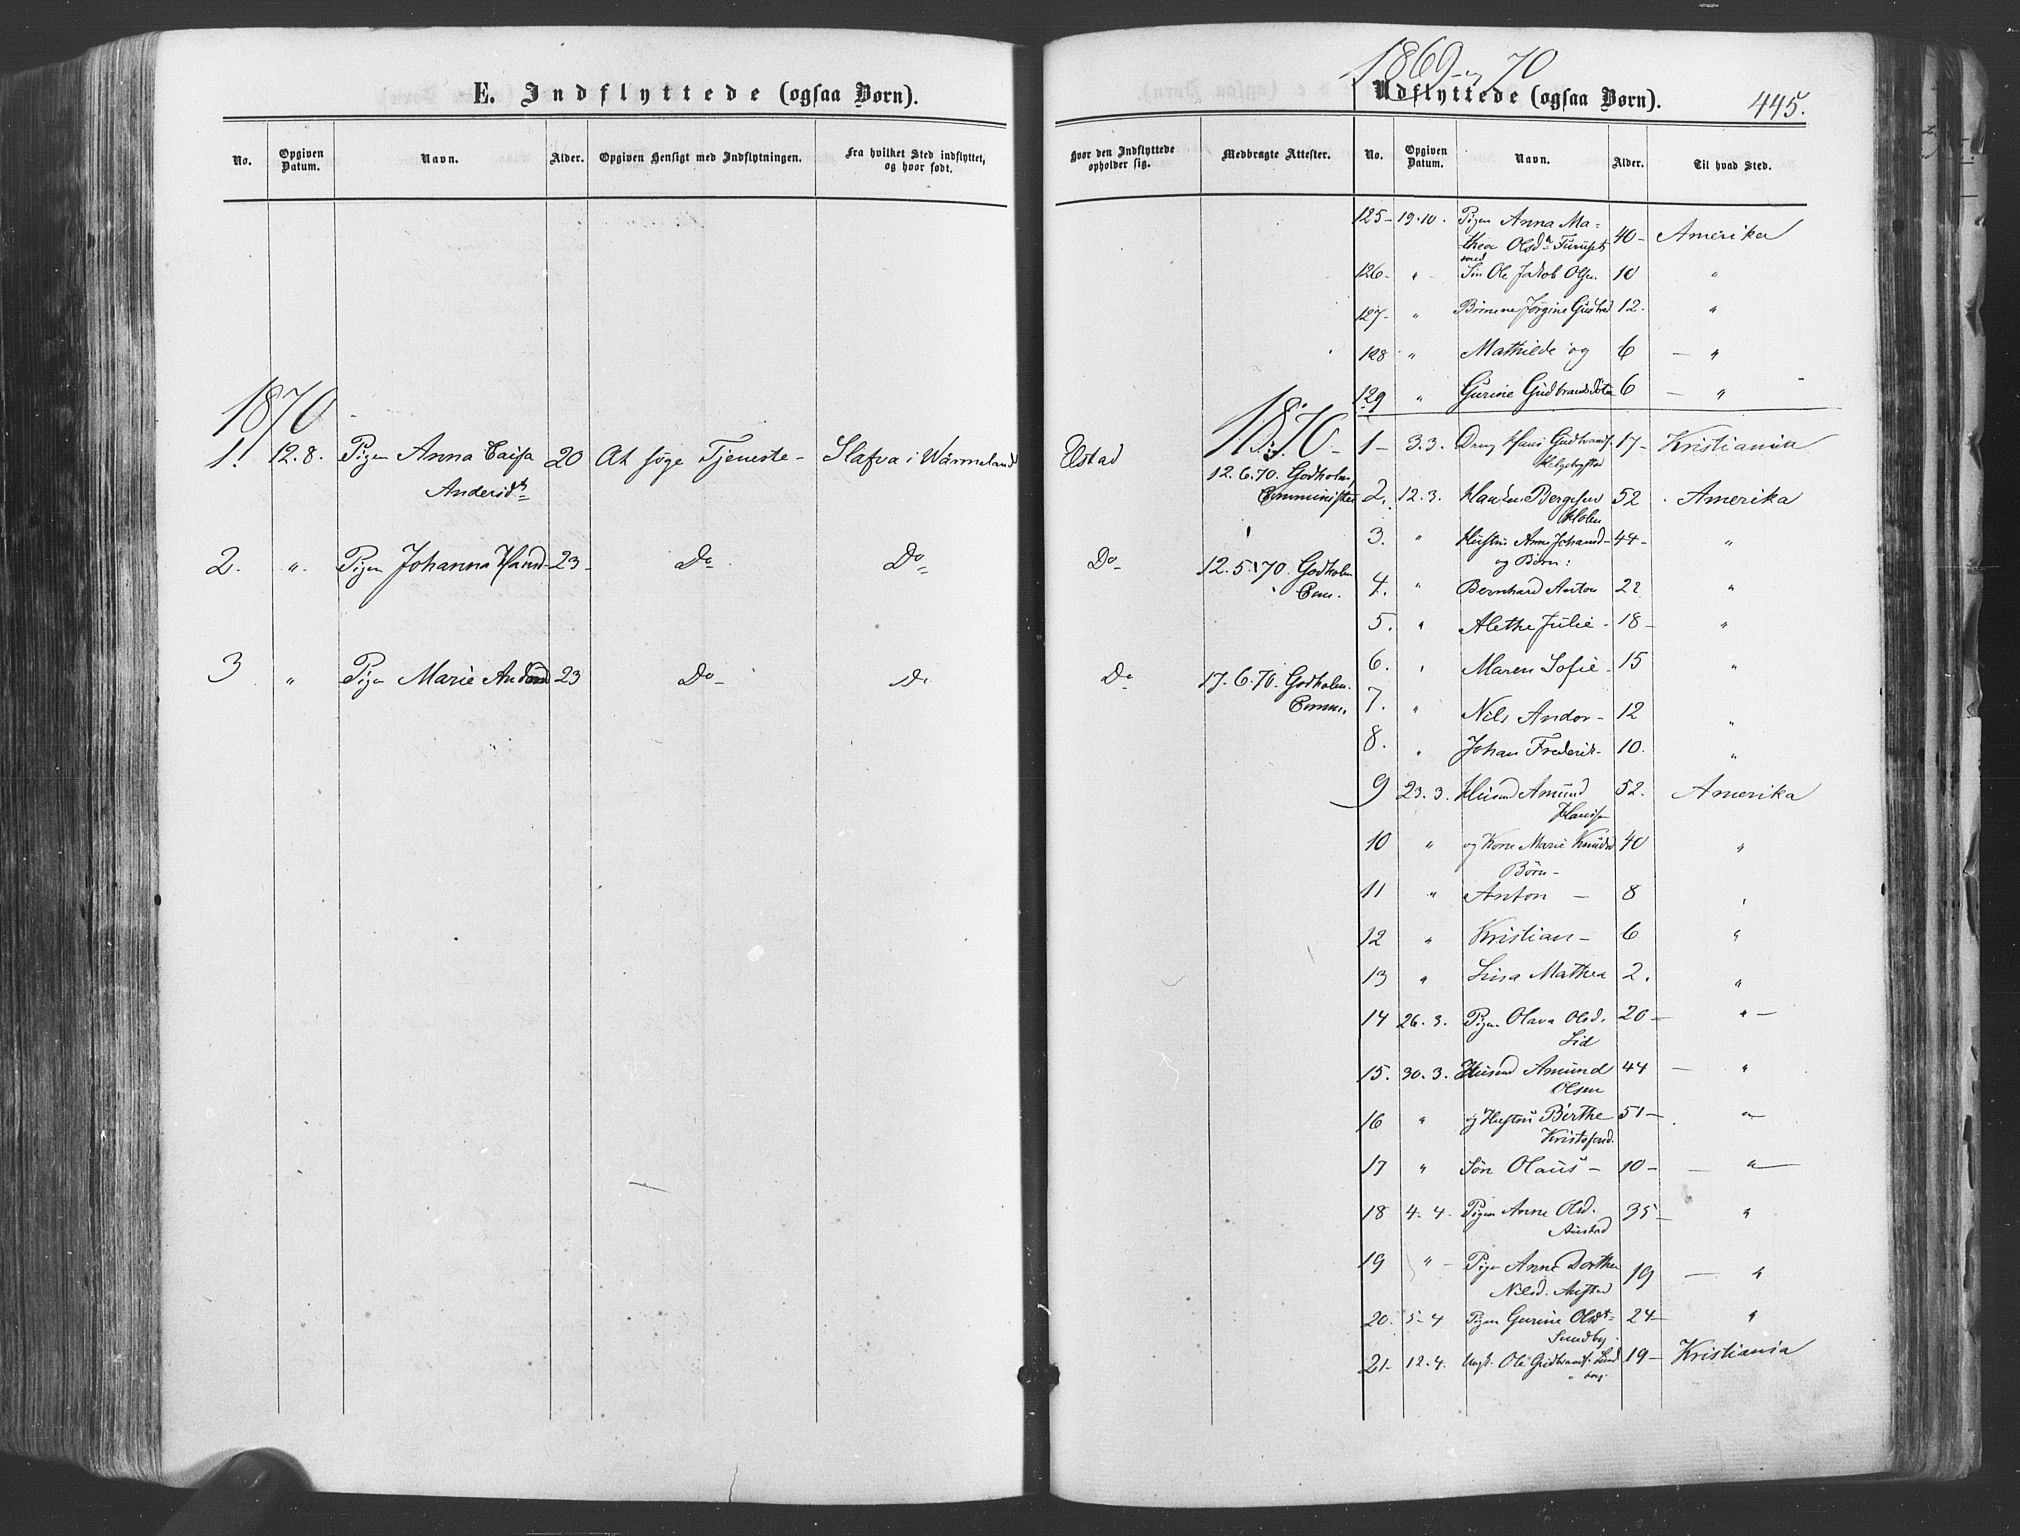 E. Indflyttede (ogsaa Børn).
No.
Opgiven Datum.
Navn.
Alder.
Opgiven Hensigt med Indflytningen.
Fra hvilket Sted indflyttet, og hvor født.
1870
1. 12.8. Pigen Anna Caisa 20 At søge Tjeneste - Slafva i Wärmeland
Andersd.
2. " Pigen Johanna Hansd. 23 Do Do
3 " Pigen Marie Andersd. 23 Do Do
1869 og 70
Udflyttede (ogsaa Børn).
445.
Hvor den Indflyttede opholder sig.
Medbragte Attester.
No.
Opgiven Datum.
Navn.
Alder.
Til hvad Sted.
Ustad 12.6.70. Godholm,
Comminister
Do 12.5.70. Godholm
Com.
Do 17.6.70. Godholm.
Comm.
125- 19.10. Pigen Anna Ma-
thea Olsd. 40- Amerika
med
126- " Søn Ole Jakob Olsen 10 "
127- " Børnene Jørgine 12. "
128 " Mathilde og 6 - "
129 " Gurine Gudbrandsdøtre 6 - "
1870
1- 3.3. Dreng Hans Gudbrands. 17- Kristiania
2. 12.3. Bergesen 52 Amerika
Holen
3. " Hustru Anne Johansd. 44- "
og Børn:
4. " Bernhard Anton 22 "
5. " Alethe Julie - 18- "
6. " Maren Sofie - 15 "
7. " Nils Andor - 12 "
8. " Johan Frederik - 10. "
9 23.3. Husmd Amund 52. Amerika
Hansen
10 " og Kone Marie Knudsd 40 "
Børn -
11 " Anton - 8 "
12 " Kristian - 6 "
13 " Lisa Mathea 2. "
14 26.3. Pigen Olava Olsd. 20- " -
Lid
15. 30.3. Husmd Amund 44 - "
Olsen
16 " og Hustru Birthe 51- "
Kristofersd.
17 " Søn Olaus - 10- - "
18 4.4. Pigen Anne Olsd. 35- "
Austad
19 " - Pigen Anne Dorthea 19 - "
Nilsd. Austad
20. 5-4 Pigen Gurine Olsdt. 24- "
Sundby
21- 12.4. Ungk. Ole Gudbrands. 19- Kristiania